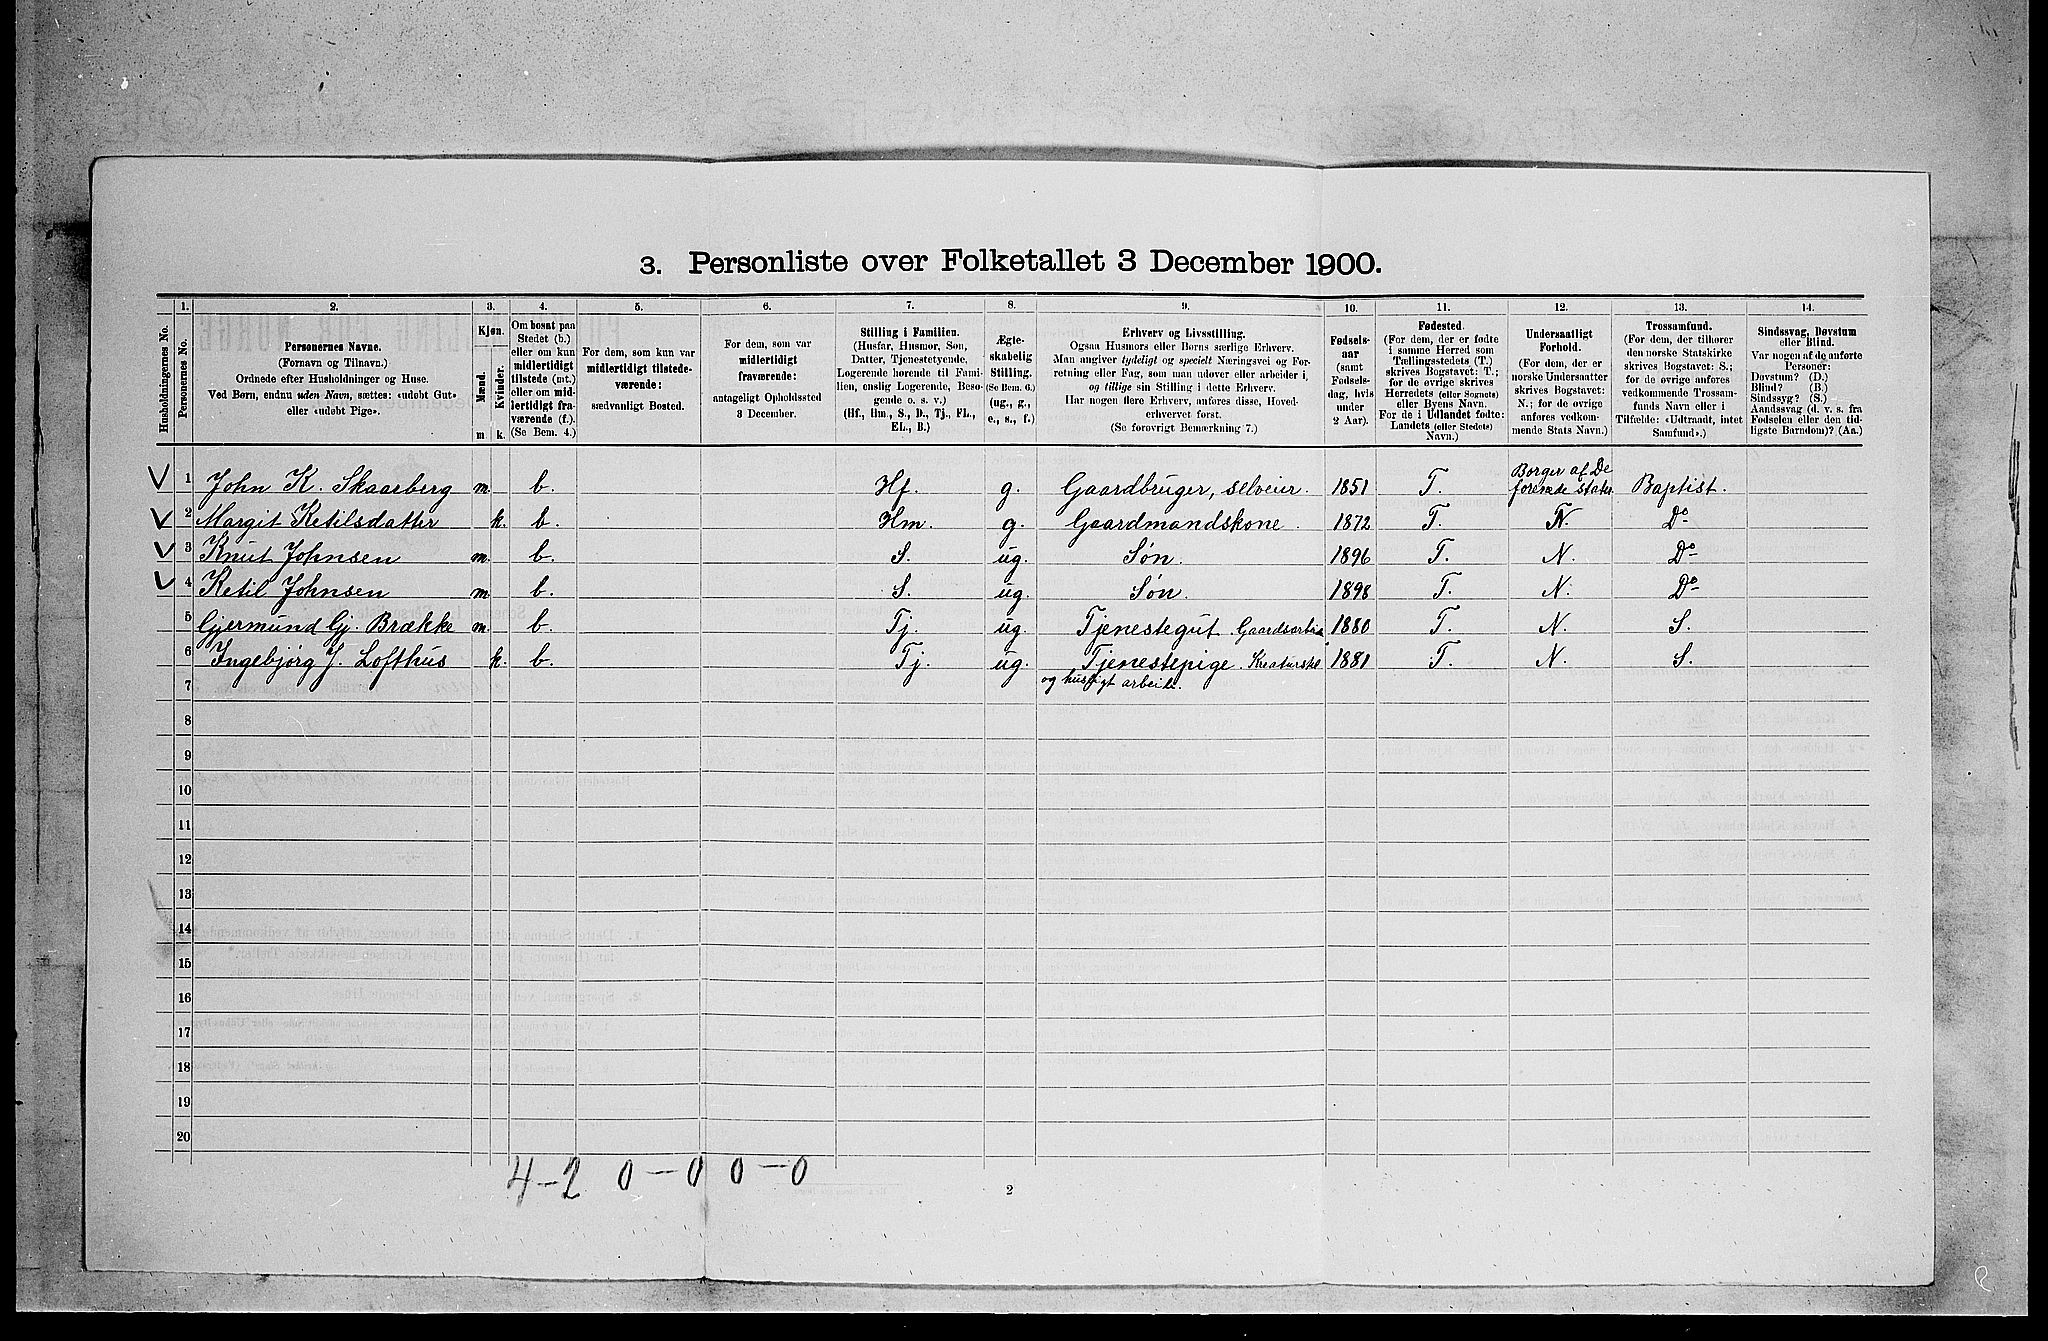 3. Personliste over Folketallet 3 December 1900.
1. 2. 3. 4. 5. 6. 7. 8. 9. 10. 11. 12. 13. 14.
Husholdningernes No.
Personernes No.
Personernes Navne.
(Fornavn og Tilnavn.)
Ordnede efter Husholdninger og Huse.
Ved Børn, endnu uden Navn, sættes: «udøbt Gut»
eller «udøbt Pige».
Kjøn.
Mænd.
Kvinder.
m. k.
Om bosat paa
Stedet (b.)
eller om kun
midlertidigt
tilstede (mt.)
eller om mid-
lertidigt fra-
værende (f.).
(Se Bem. 4.)
For dem, som kun var
midlertidigt tilstede-
værende:
sædvanligt Bosted.
For dem, som var
midlertidigt
fraværende:
antageligt Opholdssted
3 December.
Stilling i Familien.
(Husfar, Husmor, Søn,
Datter, Tjenestetyende,
Logerende hørende til Fami-
lien, enslig Logerende, Besø-
gende o. s. v.)
(Hf., Hm., S., D., Tj., FL.,
EL., B.)
Ægte-
skabelig
Stilling.
(Se Bem. 6.)
(ug., g.,
e., s., f.)
Erhverv og Livsstilling.
Ogsaa Husmors eller Børns særlige Erhverv.
Man angiver tydeligt og specielt Næringsvei og For-
retning eller Fag, som man udøver eller arbeider i,
og tillige sin Stilling i dette Erhverv.
Har nogen flere Erhverv, anføres disse, Hoved-
erhvervet først.
(Se forøvrigt Bemærkning 7.)
Fødsels-
aar
(samt
Fødsels-
dag, hvis
under
2 Aar).
Fødested.
(For dem, der er fødte
i samme Herred som
Tællingsstedets (T.)
skrives Bogstavet: T.;
for de øvrige skrives
Herredets (eller Sognets)
eller Byens Navn.
For de i Udlandet fødte:
Landets (eller Stedets)
Navn.)
Undersaatligt
Forhold.
(For dem, der er
norske Undersaatter
skrives Bogstavet:
N.; for de øvrige
anføres vedkom-
mende Stats Navn.)
Trossamfund.
(For dem, der tilhører
den norske Statskirke
skrives Bogstavet: S.;
for de øvrige anføres
vedkommende Trossam-
funds Navn eller i
Tilfælde: «Udtraadt, intet
Samfund».)
Sindssvag, Døvstum
eller Blind.
Var nogen af de anførte
Personer:
Døvstum? (D.)
Blind? (B.)
Sindssyg? (S.)
Aandssvag (d. v. s. fra
Fødselen eller den tid-
ligste Barndom)? (Aa.)
1 John K. Skaarberg m. b. Hf. g. Gaardbruger, selveier. 1851 T. Borger af De forenede stater Baptist.
2 Margit Ketilsdatter k. b. Hm. g. Gaardmandskone. 1872 T. N. Do
3 Knut Johnsen m. b. S. ug. Søn. 1896 T. N. Do
4 Ketil Johnsen m. b. S. ug. Søn. 1898 T. N. Do
5 Gjermund Gj. Brække m. b. Tj. ug. Tjenestegut. Gaardsarbei 1880 T. N. S.
6 Ingebjørg J. Lofthus k. b. Tj. ug. Tjenestepige. Kreaturstel 1881 T. N. S.
7 og husligt arbeide.
8
9
10
11
12
13
14
15
16
17
18
19
20
4-2 0-0 0-0
2